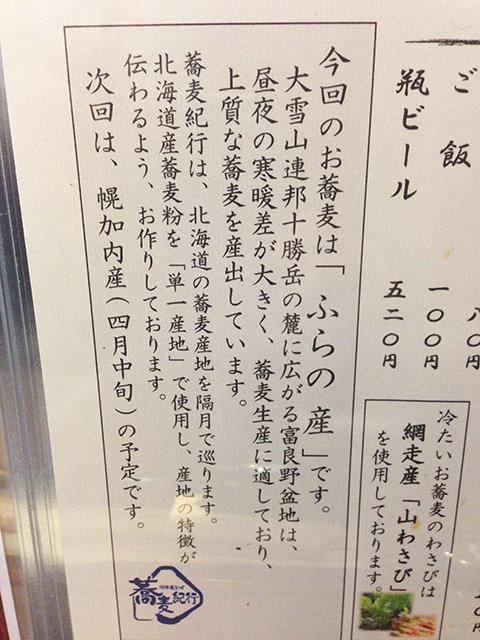 ご飯 一〇〇円
瓶ビール 五二〇円
八〇円
冷たいお蕎麦のわさびは
網走産「山わさび」
を使用しております。
今回のお蕎麦は「ふらの産」です。
大雪山連邦十勝岳の麓に広がる富良野盆地は、
昼夜の寒暖差が大きく、蕎麦生産に適しており、
上質な蕎麦を産出しています。
蕎麦紀行は、北海道の蕎麦産地を隔月で巡ります。
北海道産蕎麦粉を「単一産地」で使用し、産地の特徴が
伝わるよう、お作りしております。
次回は、幌加内産(四月中旬)の予定です。
蕎麦紀行